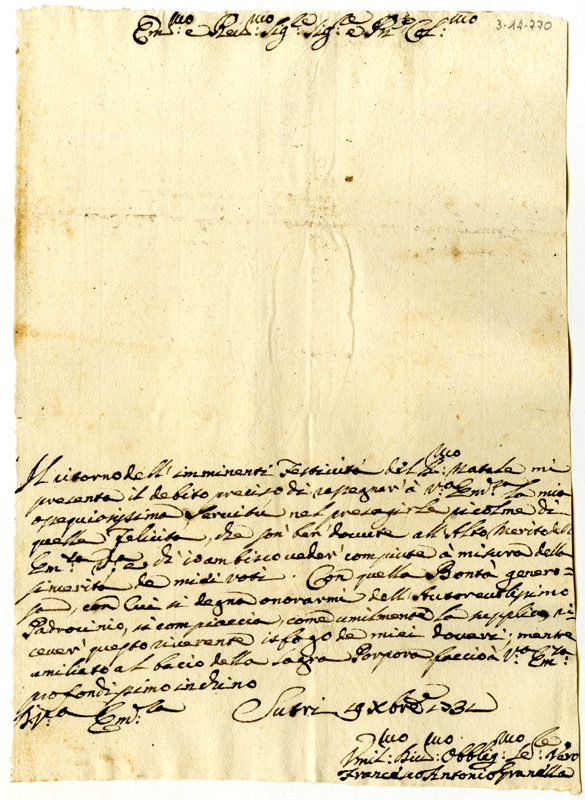 3-14-770
Em:mo e Rev:mo Sig:re Sig:re e Pne Col:mo
Il ritorno dell'imminenti Festività del S:mo Natale mi
presenta il debito preciso di rassegnar' à V:ra Em:za la mia
ossequiosissima Servitù nel presagirle ricolme di
quella Felicità, che son' ben' dovute all'Alto Merito dell'
Em:za V:ra, ch'io ambisco veder' compiute à misura della
sincerità de miei voti. Con quella Bontà genero-
sa, con cui si degna onorarmi dell'Autorevolissimo
Padrocinio, si compiaccia, come umilmente la supplico, ri-
cever' questo riverente isfogo de miei doveri; mentre
umiliato al bacio della sagra Porpora faccio à V:ra Em:za
profondissimo inchino
Di V:ra Em:za Sutri 19 Xbre 1731
Umil:mo Div:mo Obblig:mo Se:re Vero
Francesco Antonio Granella